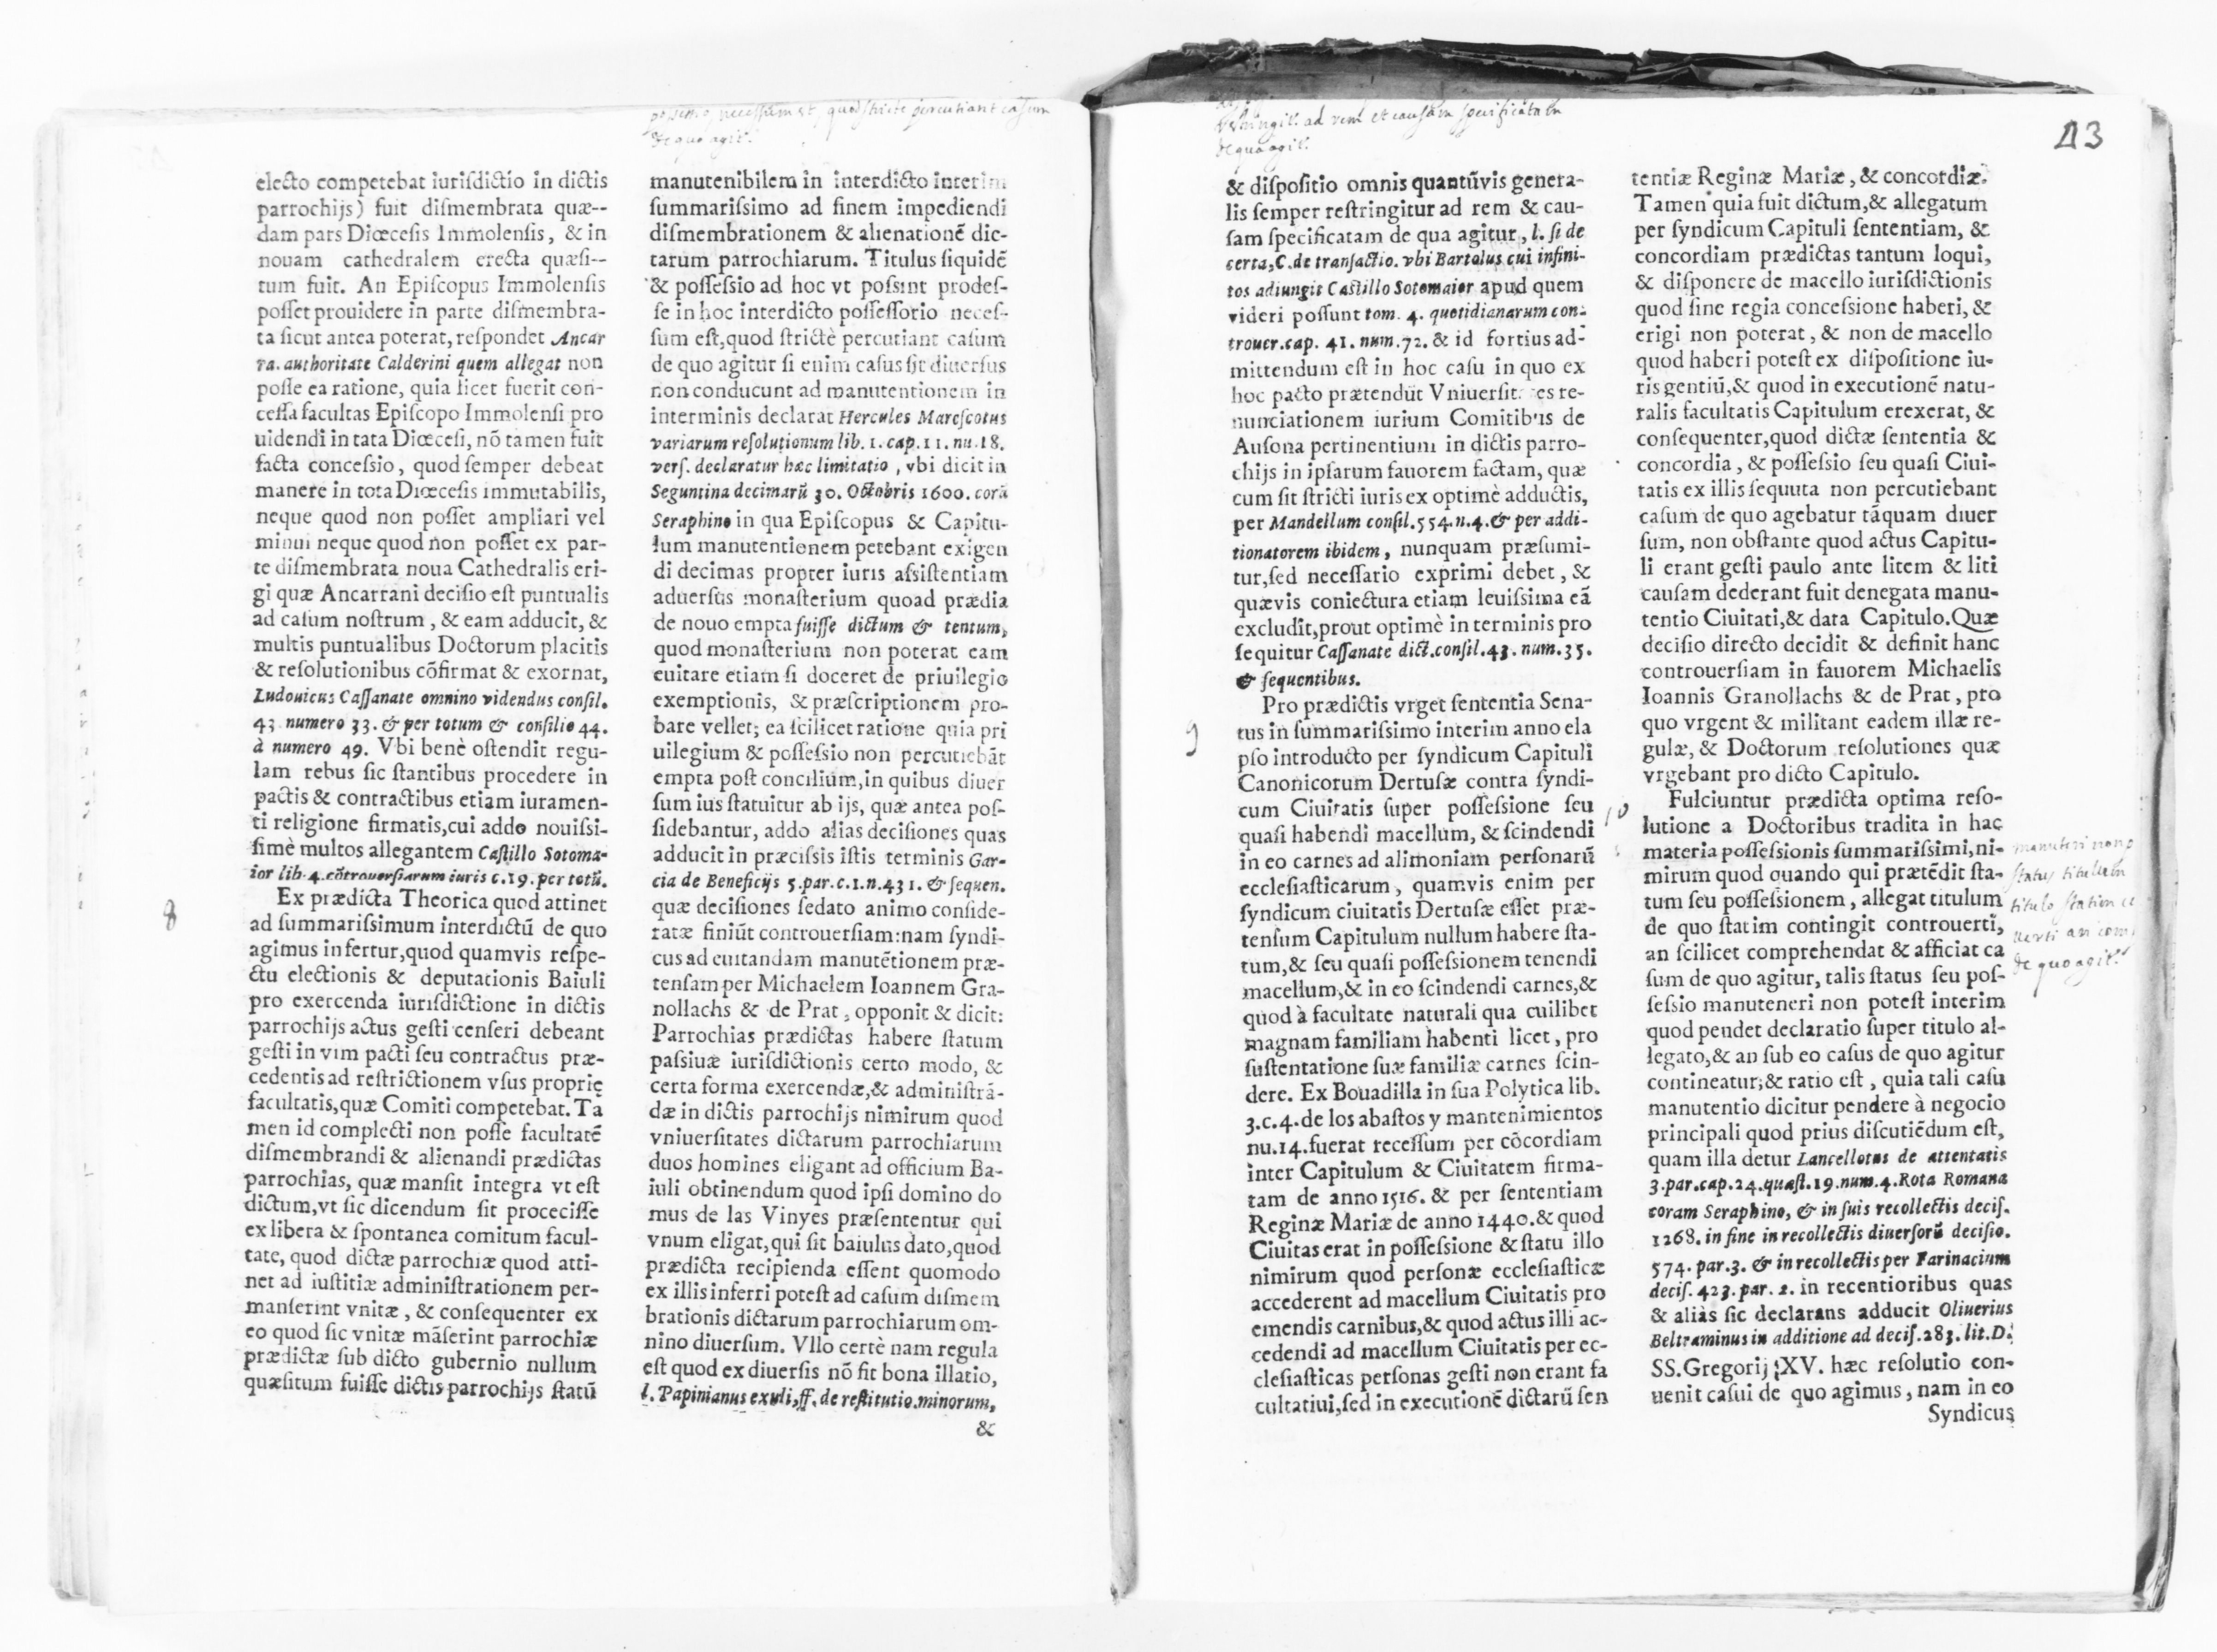 possessio necessum est, quod stricte percutiant casum
de quo agit.
electo competebat iuriſdictio in dictis
parrochijs) fuit diſmembrata quæ--
dam pars Diœceſis Immolenſis, & in
nouam cathedralem erecta quæſi--
tum fuit. An Epiſcopus Immolenſis
poſſet prouidere in parte diſmembra-
ta ſicut antea poterat, reſpondet Ancar
ra. authoritate Calderini quem allegat non
poſſe ea ratione, quia licet fuerit con-
ceſſa facultas Epiſcopo Immolenſi pro
uidendi in tata Diœceſi, nõ tamen fuit
facta conceſsio, quod ſemper debeat
manere in tota Diœceſis immutabilis,
neque quod non poſſet ampliari vel
minui neque quod non poſſet ex par-
te diſmembrata noua Cathedralis eri-
gi quæ Ancarrani deciſio eſt puntualis
ad caſum noſtrum, & eam adducit, &
multis puntualibus Doctorum placitis
& reſolutionibus cõfirmat & exornat,
Ludouicus Caſſanate omnino videndus conſil.
43 numero 33. & per totum & conſilio 44.
à numero 49. Vbi benè oſtendit regu-
lam rebus ſic ſtantibus procedere in
pactis & contractibus etiam iuramen-
ti religione firmatis, cui addo nouiſsi-
ſimè multos allegantem Caſtillo Sotoma-
ior lib. 4. cõtrouerſiarum iuris c. 19. per totũ.
8
Ex prædicta Theorica quod attinet
ad ſummariſsimum interdictũ de quo
agimus infertur, quod quamvis reſpe-
ctu electionis & deputationis Baiuli
pro exercenda iuriſdictione in dictis
parrochijs actus geſti cenſeri debeant
geſti in vim pacti ſeu contractus præ-
cedentis ad reſtrictionem vſus proprię
facultatis, quæ Comiti competebat. Tã
men id complecti non poſſe facultatẽ
diſmembrandi & alienandi prædictas
parrochias, quæ manſit integra vt eſt
dictum, vt ſic dicendum ſit proceciſſe
ex libera & ſpontanea comitum facul-
tate, quod dictæ parrochiæ quod atti-
net ad iuſtitiæ adminiſtrationem per-
manſerint vnitæ, & conſequenter ex
eo quod ſic vnitæ mãſerint parrochiæ
prædictæ ſub dicto gubernio nullum
quæſitum fuiſſe dictis parrochijs ſtatũ
manutenibilem in interdicto interim
ſummariſsimo ad finem impediendi
diſmembrationem & alienationẽ dic-
tarum parrochiarum. Titulus ſiquidẽ
& poſſeſsio ad hoc vt poſsint prodeſ-
ſe in hoc interdicto poſſeſſorio neceſ-
ſum eſt, quod ſtrictè percutiant caſum
de quo agitur ſi enim caſus ſit diuerſus
non conducunt ad manutentionem in
interminis declarat Hercules Mareſcotus
variarum reſolutionum lib. 1. cap. 11. nu. 18.
verſ. declaratur hæc limitatio, vbi dicit in
Seguntina decimarũ 30. Octobris 1600. corã
Seraphino in qua Epiſcopus & Capitu-
lum manutentionem petebant exigen
di decimas propter iuris aſsiſtentiam
aduerſus monaſterium quoad prædia
de nouo empta fuiſſe dictum & tentum,
quod monaſterium non poterat eam
euitare etiam ſi doceret de priuilegio
exemptionis, & præſcriptionem pro-
bare vellet; ea ſcilicet ratione quia pri
uilegium & poſſeſsio non percutiebãt
empta poſt concilium, in quibus diuer
ſum ius ſtatuitur ab ijs, quæ antea poſ-
ſidebantur, addo alias deciſiones quas
adducit in præciſsis iſtis terminis Gar-
cia de Beneficijs 5. par. c. 1. n. 431. & ſequen.
quæ deciſiones ſedato animo conſide-
ratæ finiũt controuerſiam: nam ſyndi-
cus ad euitandam manutẽtionem præ-
tenſam per Michaelem Ioannem Gra-
nollachs & de Prat, opponit & dicit:
Parrochias prædictas habere ſtatum
paſsiuæ iuriſdictionis certo modo, &
certa forma exercendæ, & adminiſtrã-
dæ in dictis parrochijs nimirum quod
vniuerſitates dictarum parrochiarum
duos homines eligant ad officium Ba-
iuli obtinendum quod ipſi domino do
mus de las Vinyes præſententur qui
vnum eligat, qui ſit baiulus dato, quod
prædicta recipienda eſſent quomodo
ex illis inferri poteſt ad caſum diſmem
brationis dictarum parrochiarum om-
nino diuerſum. Vllo certè nam regula
eſt quod ex diuerſis nõ fit bona illatio,
l. Papinianus exuli, ff. de reſtitutio. minorum,
&
43
restringit. ad rem et causam specificatam
de qua agit.
& diſpoſitio omnis quantũvis genera-
lis ſemper reſtringitur ad rem & cau-
ſam ſpecificatam de qua agitur, l. ſi de
certa, C. de tranſactio. vbi Bartolus cui infini-
tos adiungit Caſtillo Sotomaior apud quem
videri poſſunt tom. 4. quotidianarum con-
trouer. cap. 41. num. 72. & id fortius ad-
mittendum eſt in hoc caſu in quo ex
hoc pacto prætendũt Vniuerſitates re-
nunciationem iurium Comitibus de
Auſona pertinentium in dictis parro-
chijs in ipſarum fauorem factam, quæ
cum ſit ſtricti iuris ex optimè adductis,
per Mandellum conſil. 554. n. 4. & per addi-
tionatorem ibidem, nunquam præſumi-
tur, ſed neceſſario exprimi debet, &
quævis coniectura etiam leuiſsima eã
excludit, prout optimè in terminis pro
ſequitur Caſſanate dict. conſil. 43. num. 35.
& ſequentibus.
9
Pro prædictis vrget ſententia Sena-
tus in ſummariſsimo interim anno ela
pſo introducto per ſyndicum Capituli
Canonicorum Dertuſæ contra ſyndi-
cum Ciuitatis ſuper poſſeſsione ſeu
quaſi habendi macellum, & ſcindendi
in eo carnes ad alimoniam perſonarũ
eccleſiaſticarum, quamvis enim per
ſyndicum ciuitatis Dertuſæ eſſet præ-
tenſum Capitulum nullum habere ſta-
tum, & ſeu quaſi poſſeſsionem tenendi
macellum, & in eo ſcindendi carnes, &
quod à facultate naturali qua cuilibet
magnam familiam habenti licet, pro
ſuſtentatione ſuæ familiæ carnes ſcin-
dere. Ex Bouadilla in ſua Polytica lib.
3. c. 4. de los abaſtos y mantenimientos
nu. 14. fuerat receſſum per cõcordiam
inter Capitulum & Ciuitatem firma-
tam de anno 1516. & per ſententiam
Reginæ Mariæ de anno 1440. & quod
Ciuitas erat in poſſeſsione & ſtatu illo
nimirum quod perſonæ eccleſiaſticæ
accederent ad macellum Ciuitatis pro
emendis carnibus, & quod actus illi ac-
cedendi ad macellum Ciuitatis per ec-
cleſiaſticas perſonas geſti non erant fa
cultatiui, ſed in executionẽ dictarũ ſen
tentiæ Reginæ Mariæ, & concordiæ.
Tamen quia fuit dictum, & allegatum
per ſyndicum Capituli ſententiam, &
concordiam prædictas tantum loqui,
& diſponere de macello iuriſdictionis
quod ſine regia conceſsione haberi, &
erigi non poterat, & non de macello
quod haberi poteſt ex diſpoſitione iu-
ris gentiũ, & quod in executionẽ natu-
ralis facultatis Capitulum erexerat, &
conſequenter, quod dictæ ſententia &
concordia, & poſſeſsio ſeu quaſi Ciui-
tatis ex illis ſequuta non percutiebant
caſum de quo agebatur tãquam diuer
ſum, non obſtante quod actus Capitu-
li erant geſti paulo ante litem & liti
cauſam dederant fuit denegata manu-
tentio Ciuitati, & data Capitulo. Quæ
deciſio directo decidit & definit hanc
controuerſiam in fauorem Michaelis
Ioannis Granollachs & de Prat, pro
quo vrgent & militant eadem illæ re-
gulæ, & Doctorum reſolutiones quæ
vrgebant pro dicto Capitulo.
10
Fulciuntur prædicta optima reſo-
lutione a Doctoribus tradita in hac
materia poſſeſsionis ſummariſsimi, ni-
mirum quod quando qui prætẽdit ſta-
tum ſeu poſſeſsionem, allegat titulum
de quo ſtatim contingit controuerti,
an ſcilicet comprehendat & afficiat ca
ſum de quo agitur, talis ſtatus ſeu poſ-
ſeſsio manuteneri non poteſt interim
quod pendet declaratio ſuper titulo al-
legato, & an ſub eo caſus de quo agitur
contineatur; & ratio eſt, quia tali caſu
manutentio dicitur pendere à negocio
principali quod prius diſcutiẽdum eſt,
quam illa detur Lancellotus de attentatis
3. par. cap. 24. quæſt. 19. num. 4. Rota Romana
coram Seraphino, & in ſuis recollectis deciſ.
1268. in fine in recollectis diuerſorũ deciſio.
574. par. 3. & in recollectis per Farinacium
deciſ. 423. par. 2. in recentioribus quas
& aliàs ſic declarans adducit Oliuerius
Beltraminus in additione ad deciſ. 283. lit. D.
SS. Gregorij XV. hæc reſolutio con-
uenit caſui de quo agimus, nam in eo
Syndicus
manuteri non p
status titulum
titulo statim
uerti an com
de quo agit.